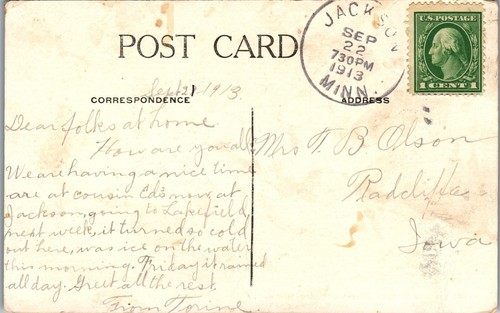 POST CARD
JACKSON
SEP
22
730PM
1913
MINN.
U.S. POSTAGE
1 CENT 1
Sept 21 1913.
CORRESPONDENCE
ADDRESS
Dear folks at home.
How are you all
We are having a nice time
are at cousin Ed's now at
Jackson, going to Lakefield,
next week, it turned so cold
out here, was ice on the water
this morning. Friday it rained
all day. Greet all the rest.
From Torine.
Mrs T. B. Olson
Radcliffe
Iowa